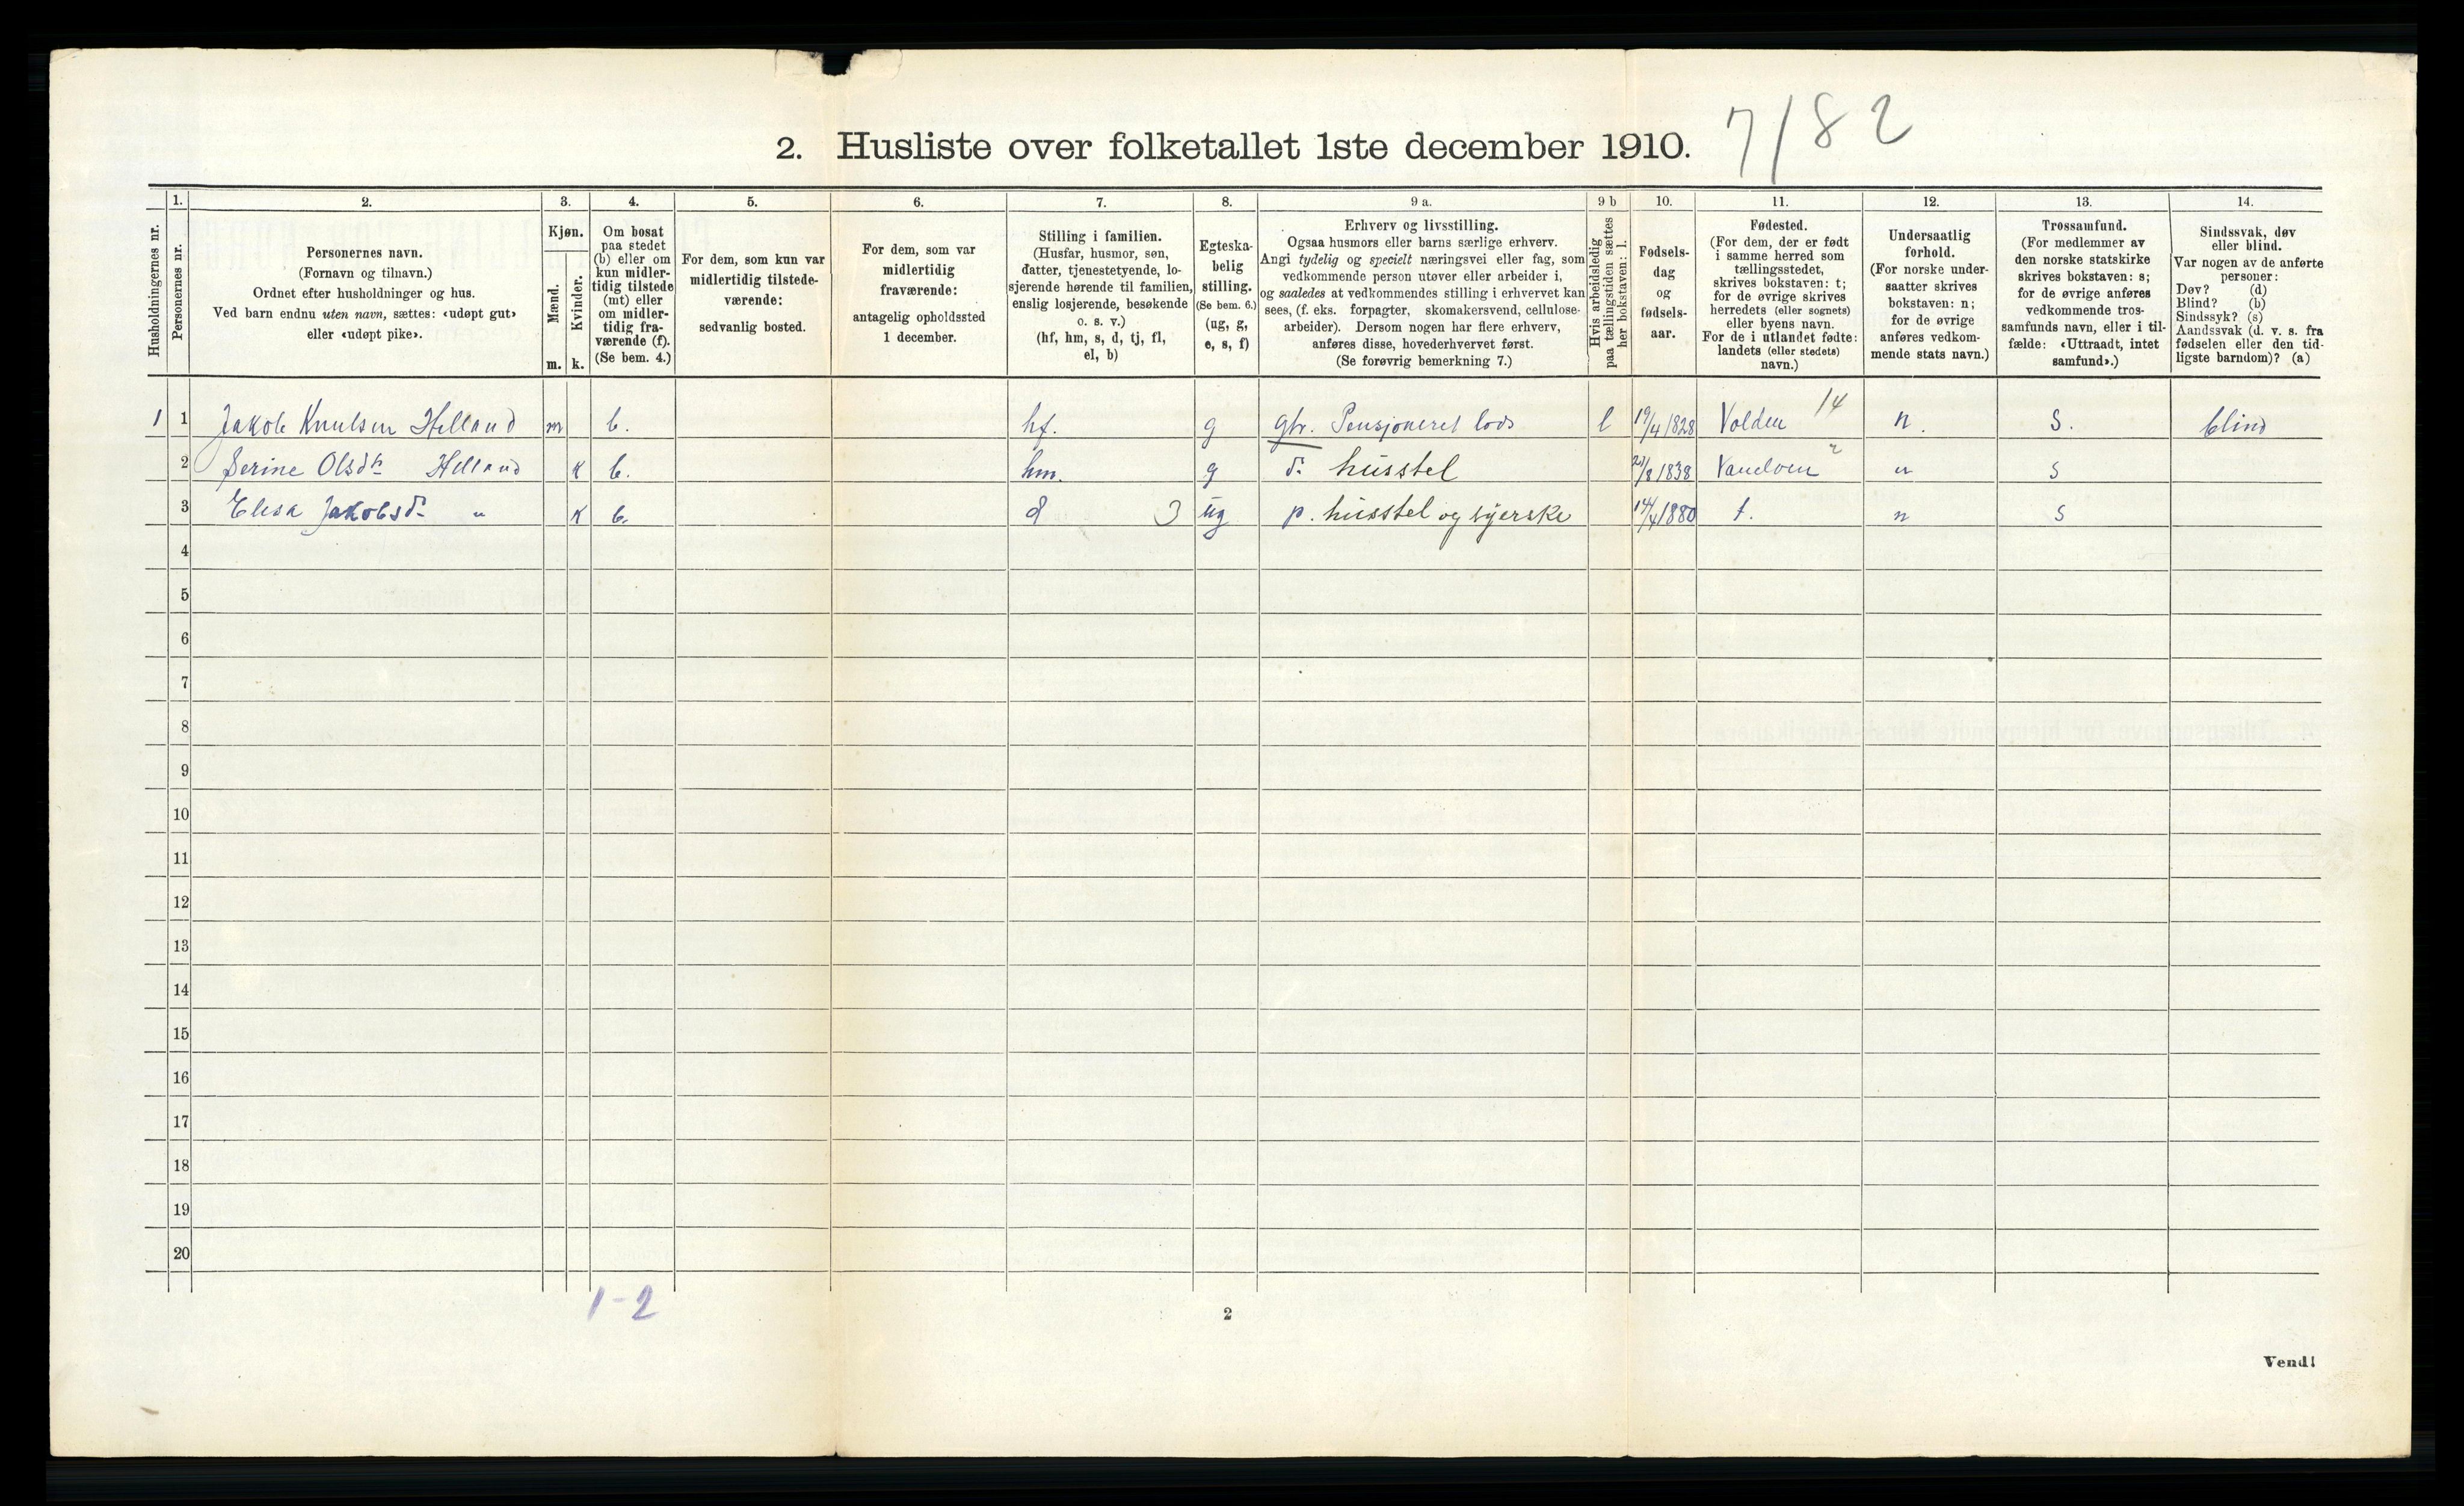 7/82
2. Husliste over folketallet 1ste december 1910.
1. 2. 3. 4. 5. 6. 7. 8. 9 a. 9 b 10. 11. 12. 13. 14.
Husholdningernes nr.
Personernes nr.
Personernes navn.
(Fornavn og tilnavn.)
Ordnet efter husholdninger og hus.
Ved barn endnu uten navn, sættes: «udøpt gut»
eller «udøpt pike».
Kjøn.
Mænd.
Kvinder.
m. k.
Om bosat
paa stedet
(b) eller om
kun midler-
tidig tilstede
(mt) eller
om midler-
tidig fra-
værende (f).
(Se bem. 4.)
For dem, som kun var
midlertidig tilstede-
værende:
sedvanlig bosted.
For dem, som var
midlertidig
fraværende:
antagelig opholdssted
1 december.
Stilling i familien.
(Husfar, husmor, søn,
datter, tjenestetyende, lo-
sjerende hørende til familien,
enslig losjerende, besøkende
o. s. v.)
(hf, hm, s, d, tj, fl,
el, b)
Egteska-
belig
stilling.
(Se bem. 6.)
(ug, g,
e, s, f)
Erhverv og livsstilling.
Ogsaa husmors eller barns særlige erhverv.
Angi tydelig og specielt næringsvei eller fag, som
vedkommende person utøver eller arbeider i,
og saaledes at vedkommendes stilling i erhvervet kan
sees, (f. eks. forpagter, skomakersvend, cellulose-
arbeider). Dersom nogen har flere erhverv,
anføres disse, hovederhvervet først.
(Se forøvrig bemerkning 7.)
Hvis arbeidsledig
paa tællingstiden sættes
her bokstaven: l.
Fødsels-
dag
og
fødsels-
aar.
Fødested.
(For dem, der er født
i samme herred som
tællingsstedet,
skrives bokstaven: t;
for de øvrige skrives
herredets (eller sognets)
eller byens navn.
For de i utlandet fødte:
landets (eller stedets)
navn.)
Undersaatlig
forhold.
(For norske under-
saatter skrives
bokstaven: n;
for de øvrige
anføres vedkom-
mende stats navn.)
Trossamfund.
(For medlemmer av
den norske statskirke
skrives bokstaven: s;
for de øvrige anføres
vedkommende tros-
samfunds navn, eller i til-
fælde: «Uttraadt, intet
samfund».)
Sindssvak, døv
eller blind.
Var nogen av de anførte
personer:
Døv? (d)
Blind? (b)
Sindssyk? (s)
Aandssvak (d. v. s. fra
fødselen eller den tid-
ligste barndom)? (a)
1 1 Jakob Knutsen Helland m b. hf. g gbr. Pensjoneret lods l 19/4 1828 Volden 14 n. s. blind
2 Serine Olsdtr Helland k b. hm. g d: husstel 1838 n s
3 Elesa Jakobsd: " k b. d 3 ug p. husstel og syerske 14/4 1880 t. n s
4
5
6
7
8
9
10
11
12
13
14
15
16
17
18
19
20
1-2
2
Vend!